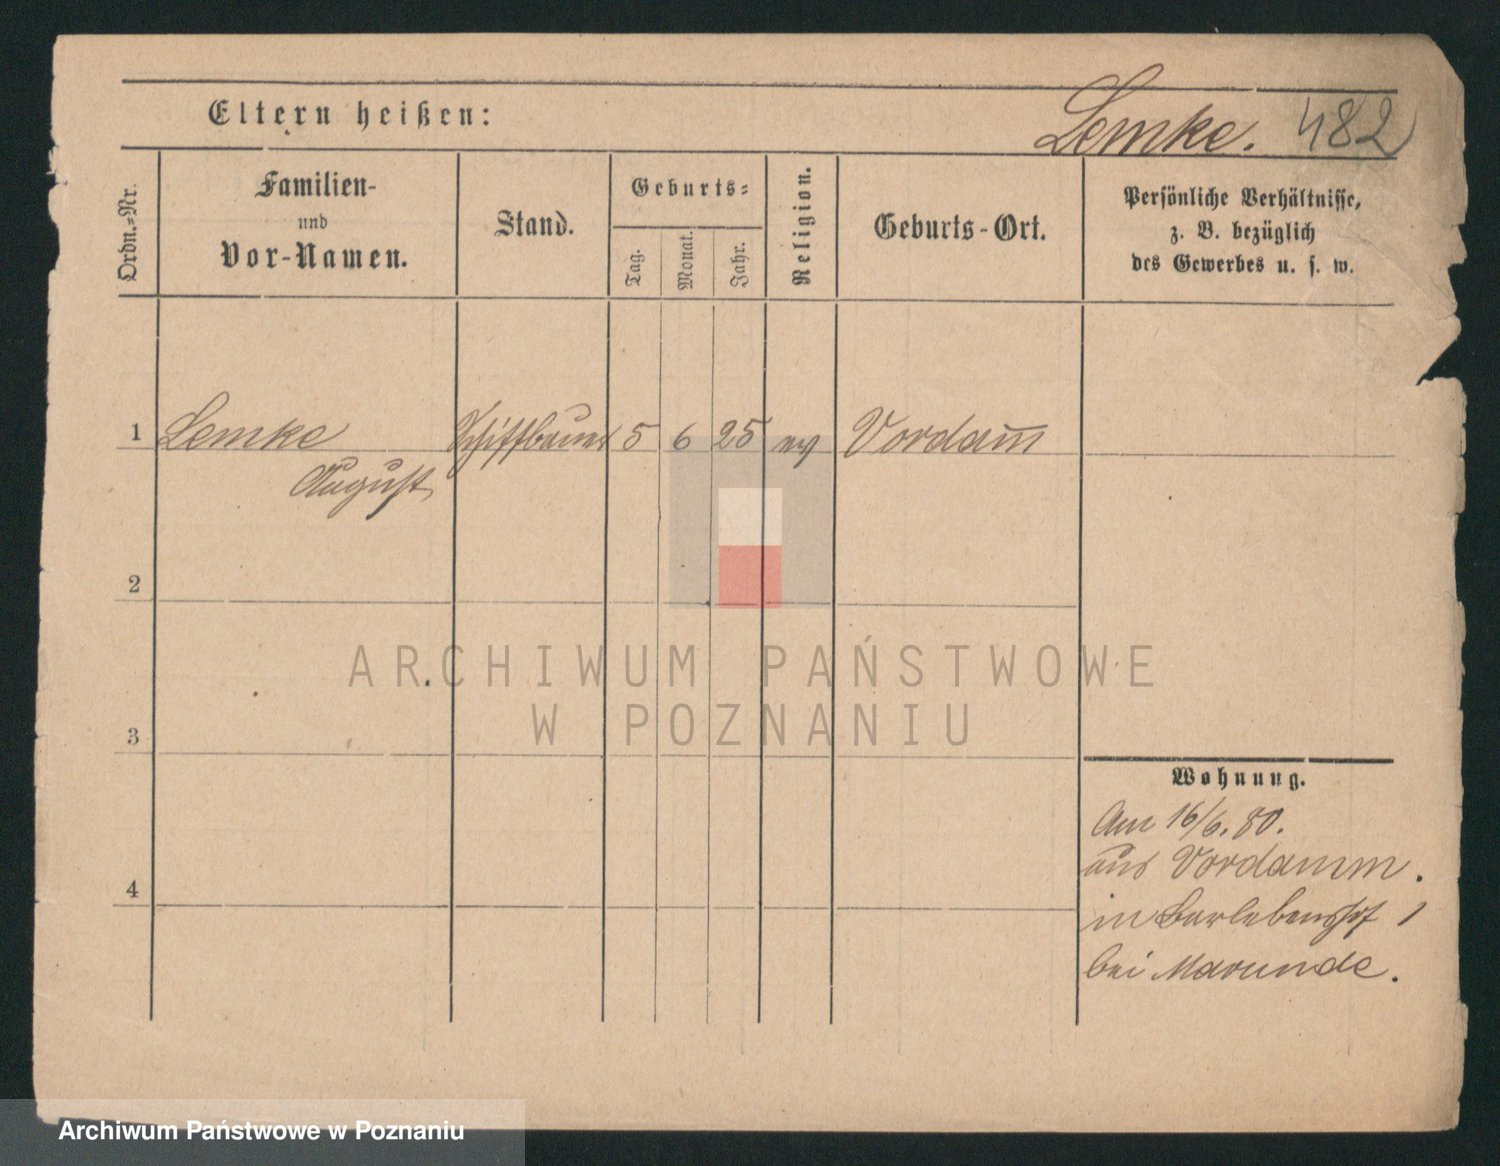 Eltern heißen:
Lemke. 482
Ordn.-Nr.
Familien-
und
Vor-Namen.
Stand.
Geburts-
Tag.
Monat.
Jahr.
Religion.
Geburts-Ort.
Persönliche Verhältnisse,
z. B. bezüglich
des Gewerbes u. s. w.
1 Lemke Schiffbauer 5 6 25 ev Vordam̅
August
2
3
4
Wohnung.
Am 16/6. 80.
aus Vordamm.
in Barlebenshof 1
bei Marunde.
ARCHIWUM PAŃSTWOWE
W POZNANIU
Archiwum Państwowe w Poznaniu